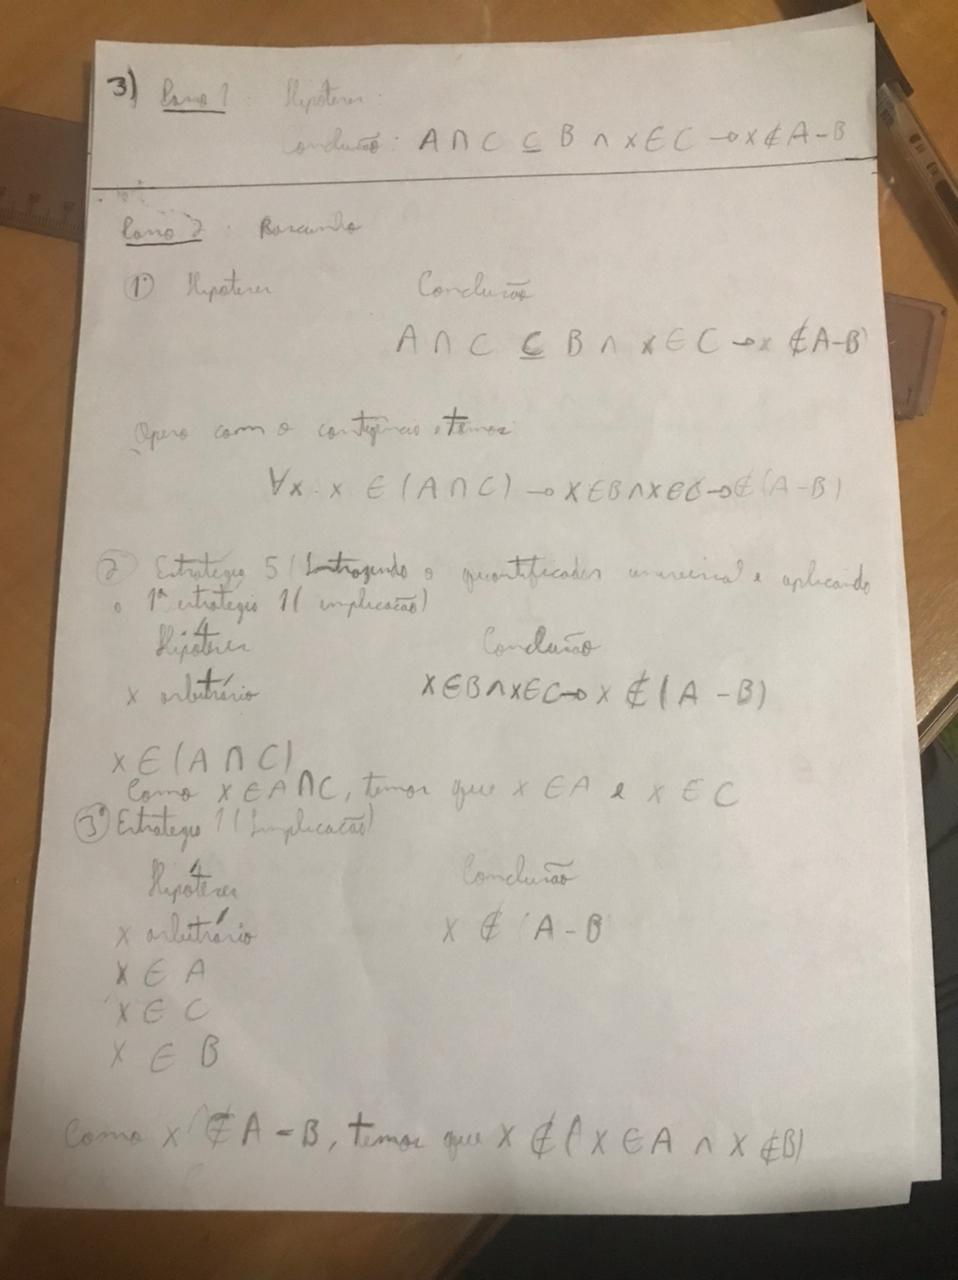 3) Passo 1 : Hipóteses :
Conclusão : A ∩ C ⊆ B ∧ x ∈ C → x ∉ A - B
Passo 2 : Rascunho
1º Hipóteses Conclusão
A ∩ C ⊆ B ∧ x ∈ C → x ∉ A-B
Opero com a temos:
∀x : x ∈ (A ∩ C) → x ∈ B ∧ x ∈ C → ∉ (A - B)
2º Estratégia 5 ( o quantificador universal e aplicando
a 1ª estratégia 1 ( implicação)
Hipóteses Conclusão
x arbitrário x ∈ B ∧ x ∈ C → x ∉ (A - B)
x ∈ (A ∩ C)
Como x ∈ A ∩ C, temos que x ∈ A e x ∈ C
3º Estratégia 1 (Implicação)
Hipóteses Conclusão
x arbitrário x ∉ A - B
x ∈ A
x ∈ C
x ∈ B
Como x ∉ A - B, temos que x ∉ ( x ∈ A ∧ x ∉ B)